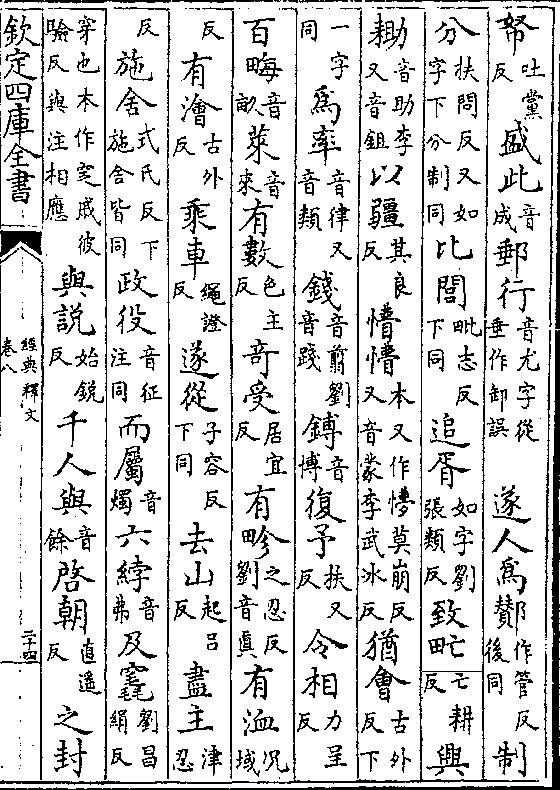 帑吐黨反盛此音成郵行音尤字從垂作卸誤遂人爲酇作管反後同制
分扶問反又如字下分制同比閭毗志反下同追胥如字劉張類反致甿亡耕反興
耡音助李又音鉏以疆其良反懵懵本又作懜莫崩反又音蒙李武冰反猶會古外反下
一字同爲率音律又音類錢音翦劉音踐鎛音博復予扶又反令相力呈反
百畮音畝萊音來有數色主反奇受居宜反有畛之忍反劉音眞有洫况域
反有澮古外反乘車繩證反遂從子容反下同去山起呂反盡主津忍
反施舍式氏反下施舍皆同政役音征注同而屬音燭六綍音弗及竁劉昌絹反
穿也本作窆戚彼驗反與注相應與説始銳反千人與音餘啓朝直遥反之封
欽定四庫全書
經典釋文
卷八
二十四